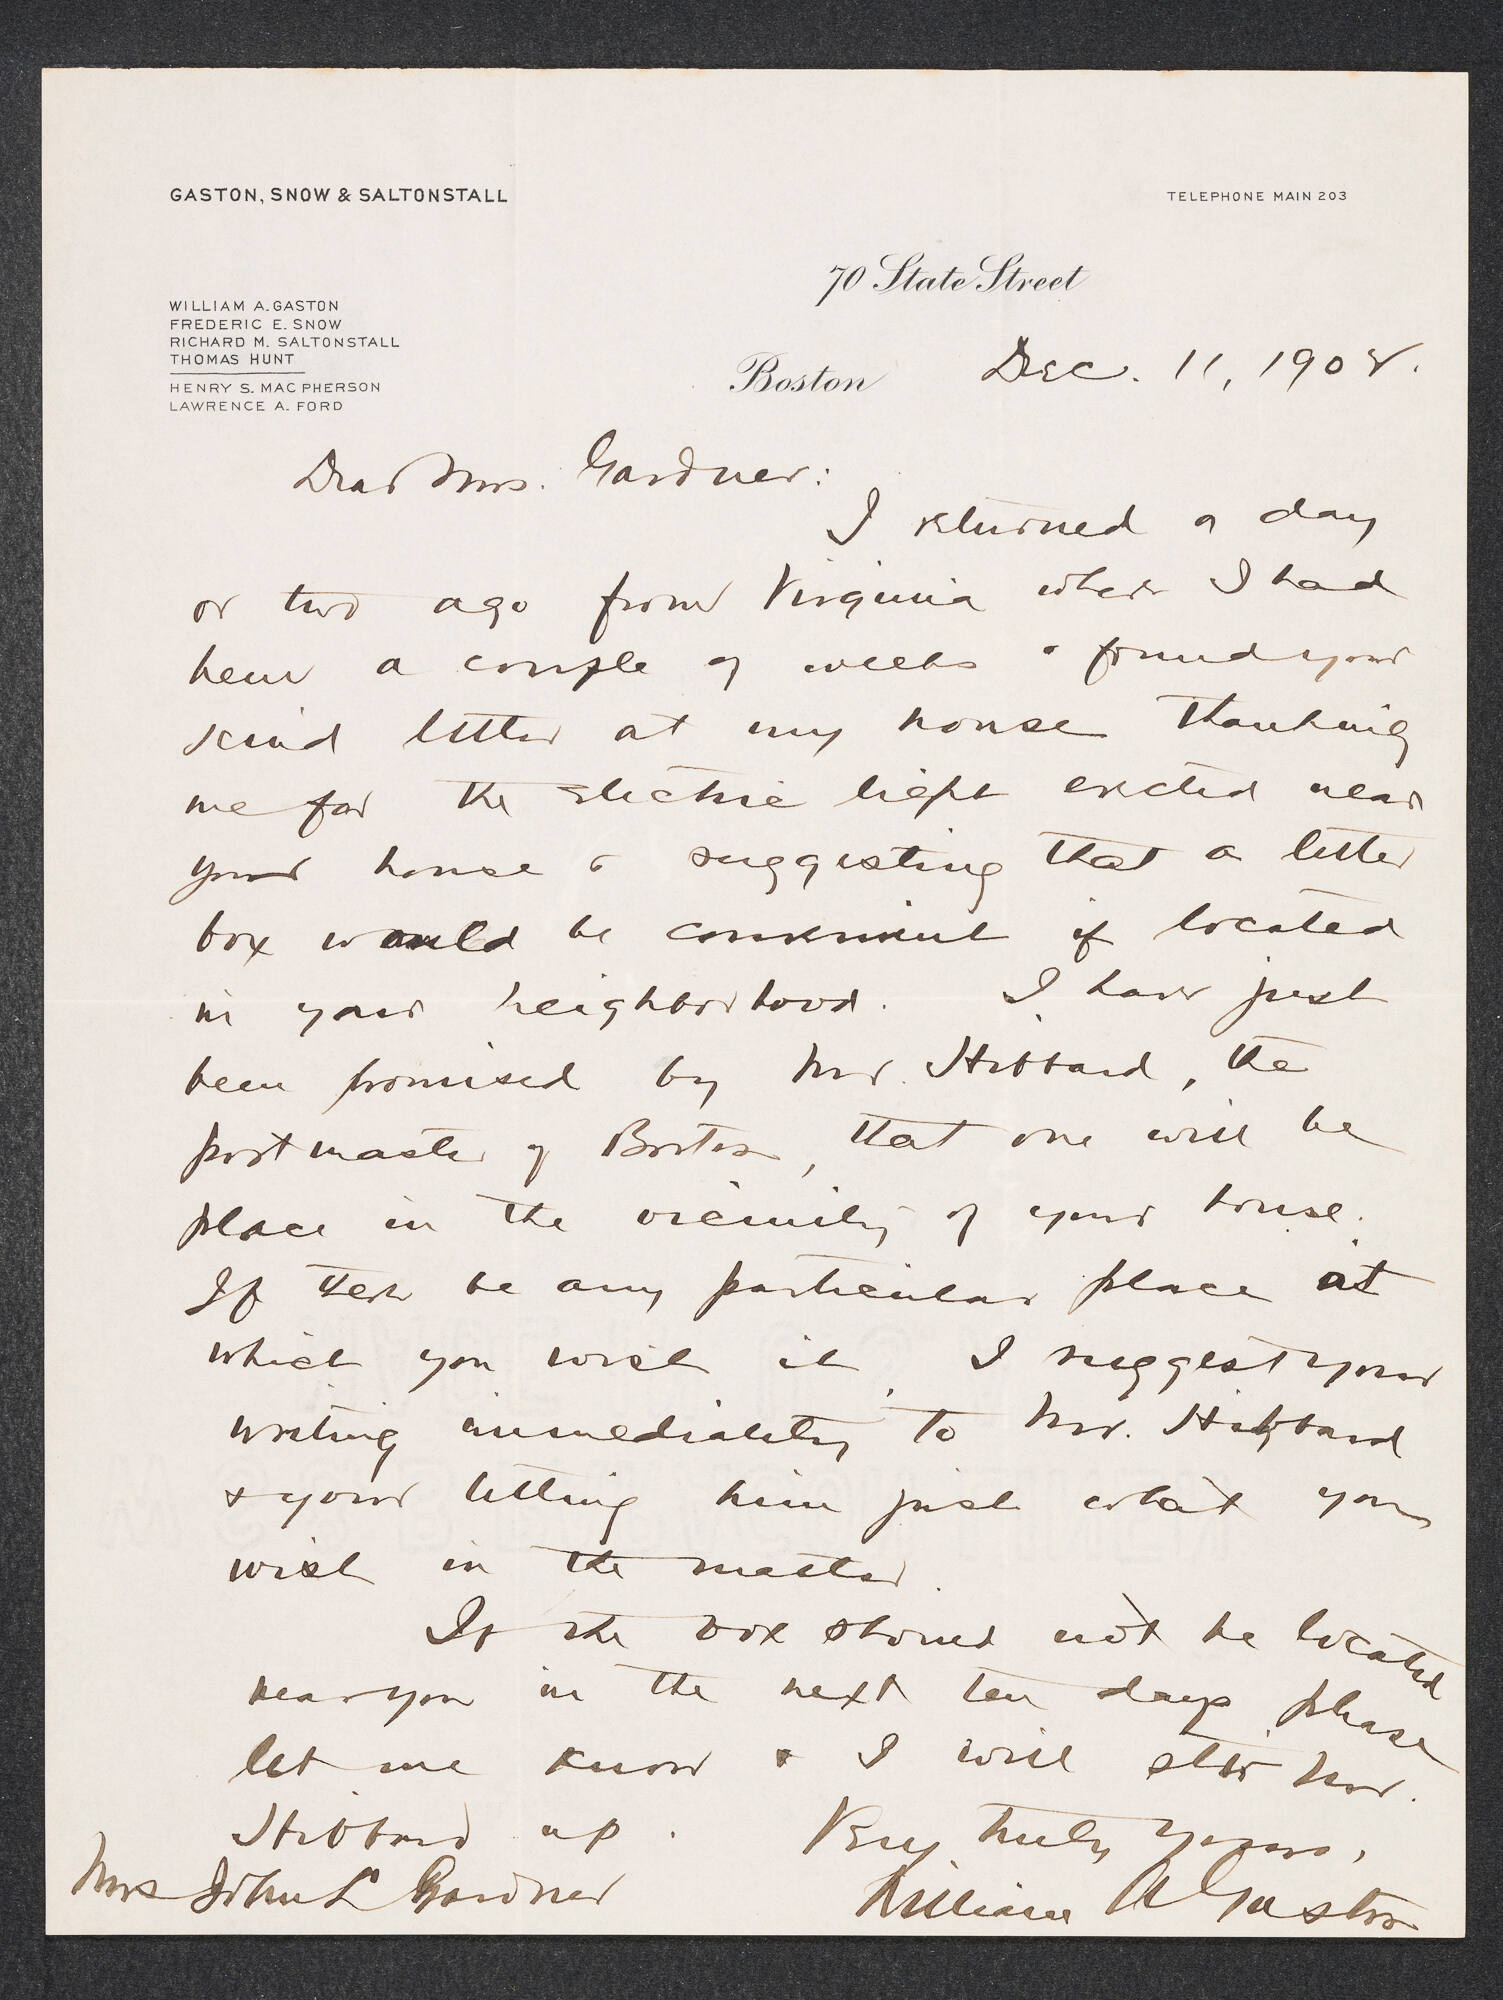 GASTON, SNOW & SALTONSTALL
TELEPHONE MAIN 203
70 State Street
WILLIAM A. GASTON
FREDERIC E. SNOW
RICHARD M. SALTONSTALL
THOMAS HUNT
HENRY S. MAC PHERSON
LAWRENCE A. FORD
Boston Dec. 11, 1908.
Dear Mrs. Gardner:
I returned a day
or two ago from Virginia where I had
been a couple of weeks & found your
kind letter at my house thanking
me for the electric light erected near
your house & suggesting that a letter
box would be convenient if located
in your neighborhood. I have just
been promised by Mr. Hibbard, the
postmaster of Boston, that one will be
place in the vicinity of your house.
If there be any particular place at
which you wish it, I suggest your
writing immediately to Mr. Hibbard
& your letting him just what you
wish in the matter.
If the box should not be located
near you in the next ten days please
let me know & I will stir Mr.
Hibbard up.
Very truly yours,
Mrs John L Gardner
William A Gaston